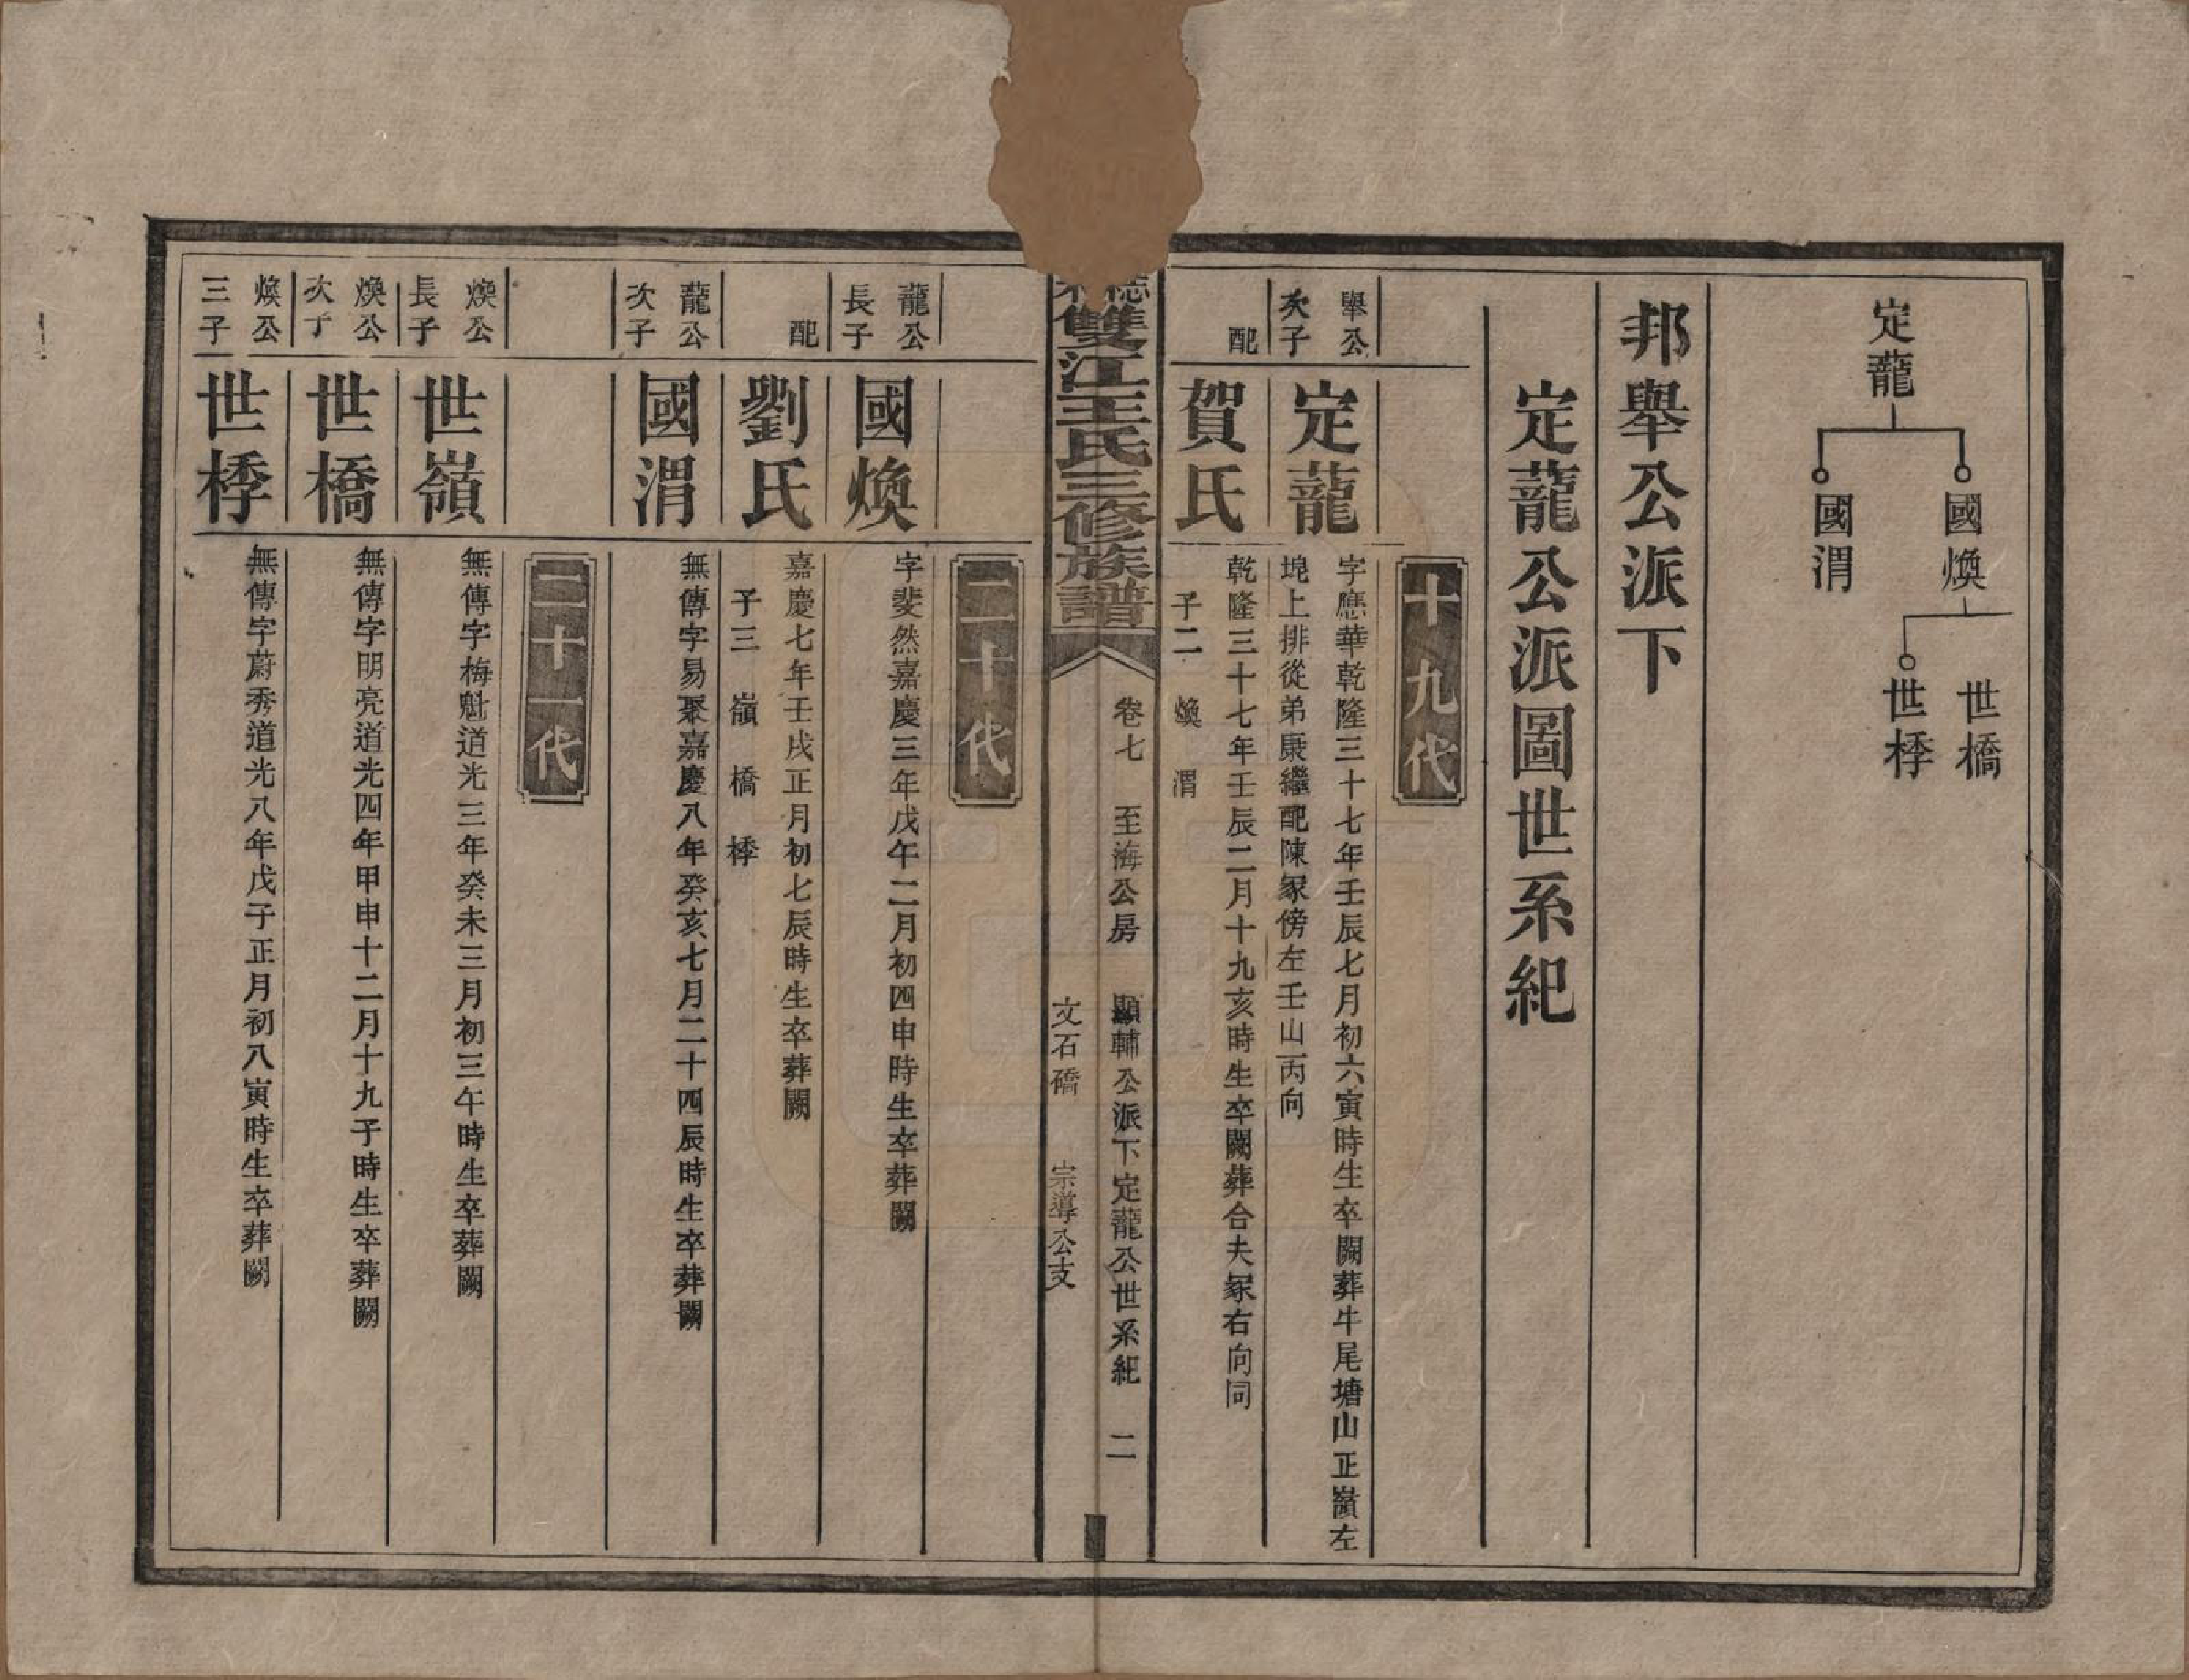 定蘢
國煥
國渭
世橋
世桳
邦舉公派下
定蘢公派圖世系紀
十九代
舉公次子
定蘢
字應華乾隆三十七年壬辰七月初六寅時生卒闕葬牛尾塘山正嶺左
塊上排從弟康繼配陳冢傍左壬山丙向
配
賀氏
乾隆三十七年壬辰二月十九亥時生卒闕葬合夫冢右向同
子二 煥 渭
雙江王氏三修族譜
卷七 至海公房 顯輔公派下定蘢公世系紀 二
文石礄 宗導公支
二十代
蘢公長子
國煥
字斐然嘉慶三年戊午二月初四申時生卒葬闕
配
劉氏
嘉慶七年壬戌正月初七辰時生卒葬闕
子三 嶺 橋 桳
蘢公次子
國渭
無傳字易聚嘉慶八年癸亥七月二十四辰時生卒葬闕
二十一代
煥公長子
世嶺
無傳字梅魁道光三年癸未三月初三午時生卒葬闕
煥公次子
世橋
無傳字明亮道光四年甲申十二月十九子時生卒葬闕
煥公三子
世桳
無傳字蔚秀道光八年戊子正月初八寅時生卒葬闕